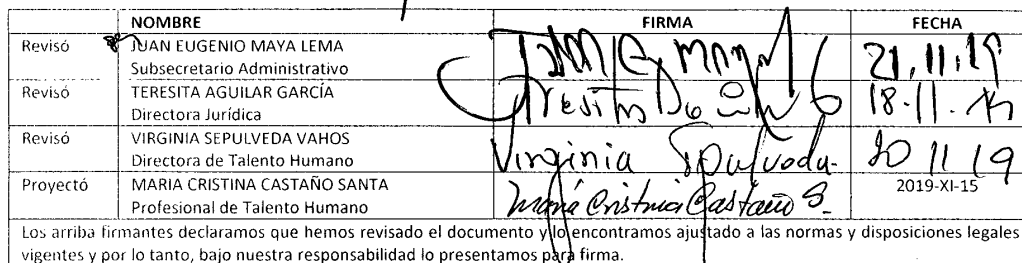 NOMBRE FIRMA FECHA
Revisó JUAN EUGENIO MAYA LEMA
Subsecretario Administrativo 21.11.19
Revisó TERESITA AGUILAR GARCÍA
Directora Jurídica 18-11-
Revisó VIRGINIA SEPULVEDA VAHOS
Directora de Talento Humano Virginia Sepulveda 20 11 19
Proyectó MARIA CRISTINA CASTAÑO SANTA 2019-XI-15
Profesional de Talento Humano María Cristina Castaño S.
Los arriba firmantes declaramos que hemos revisado el documento y lo encontramos ajustado a las normas y disposiciones legales
vigentes y por lo tanto, bajo nuestra responsabilidad lo presentamos para firma.